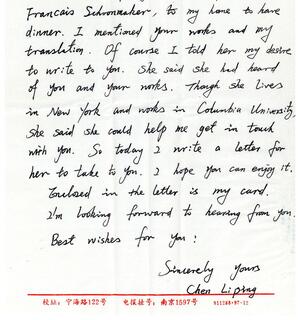 Francais Schoonmaker, to my home to have
dinner. I mentioned your works and my
translation. Of course I told her my desire
to write to you. She said she had heard
of you and your works. Though she lives
in New York and works in Columbia University,
She said she could help me get in touch
with you. So today I write a letter for
her to take to you. I hope you can enjoy it.
Enclosed in the letter is my card.
I'm looking forward to hearing from you.
Best wishes for you!
Sincerely Yours
Chen Liping
校址：宁海路122号 电报挂号：南京1597号